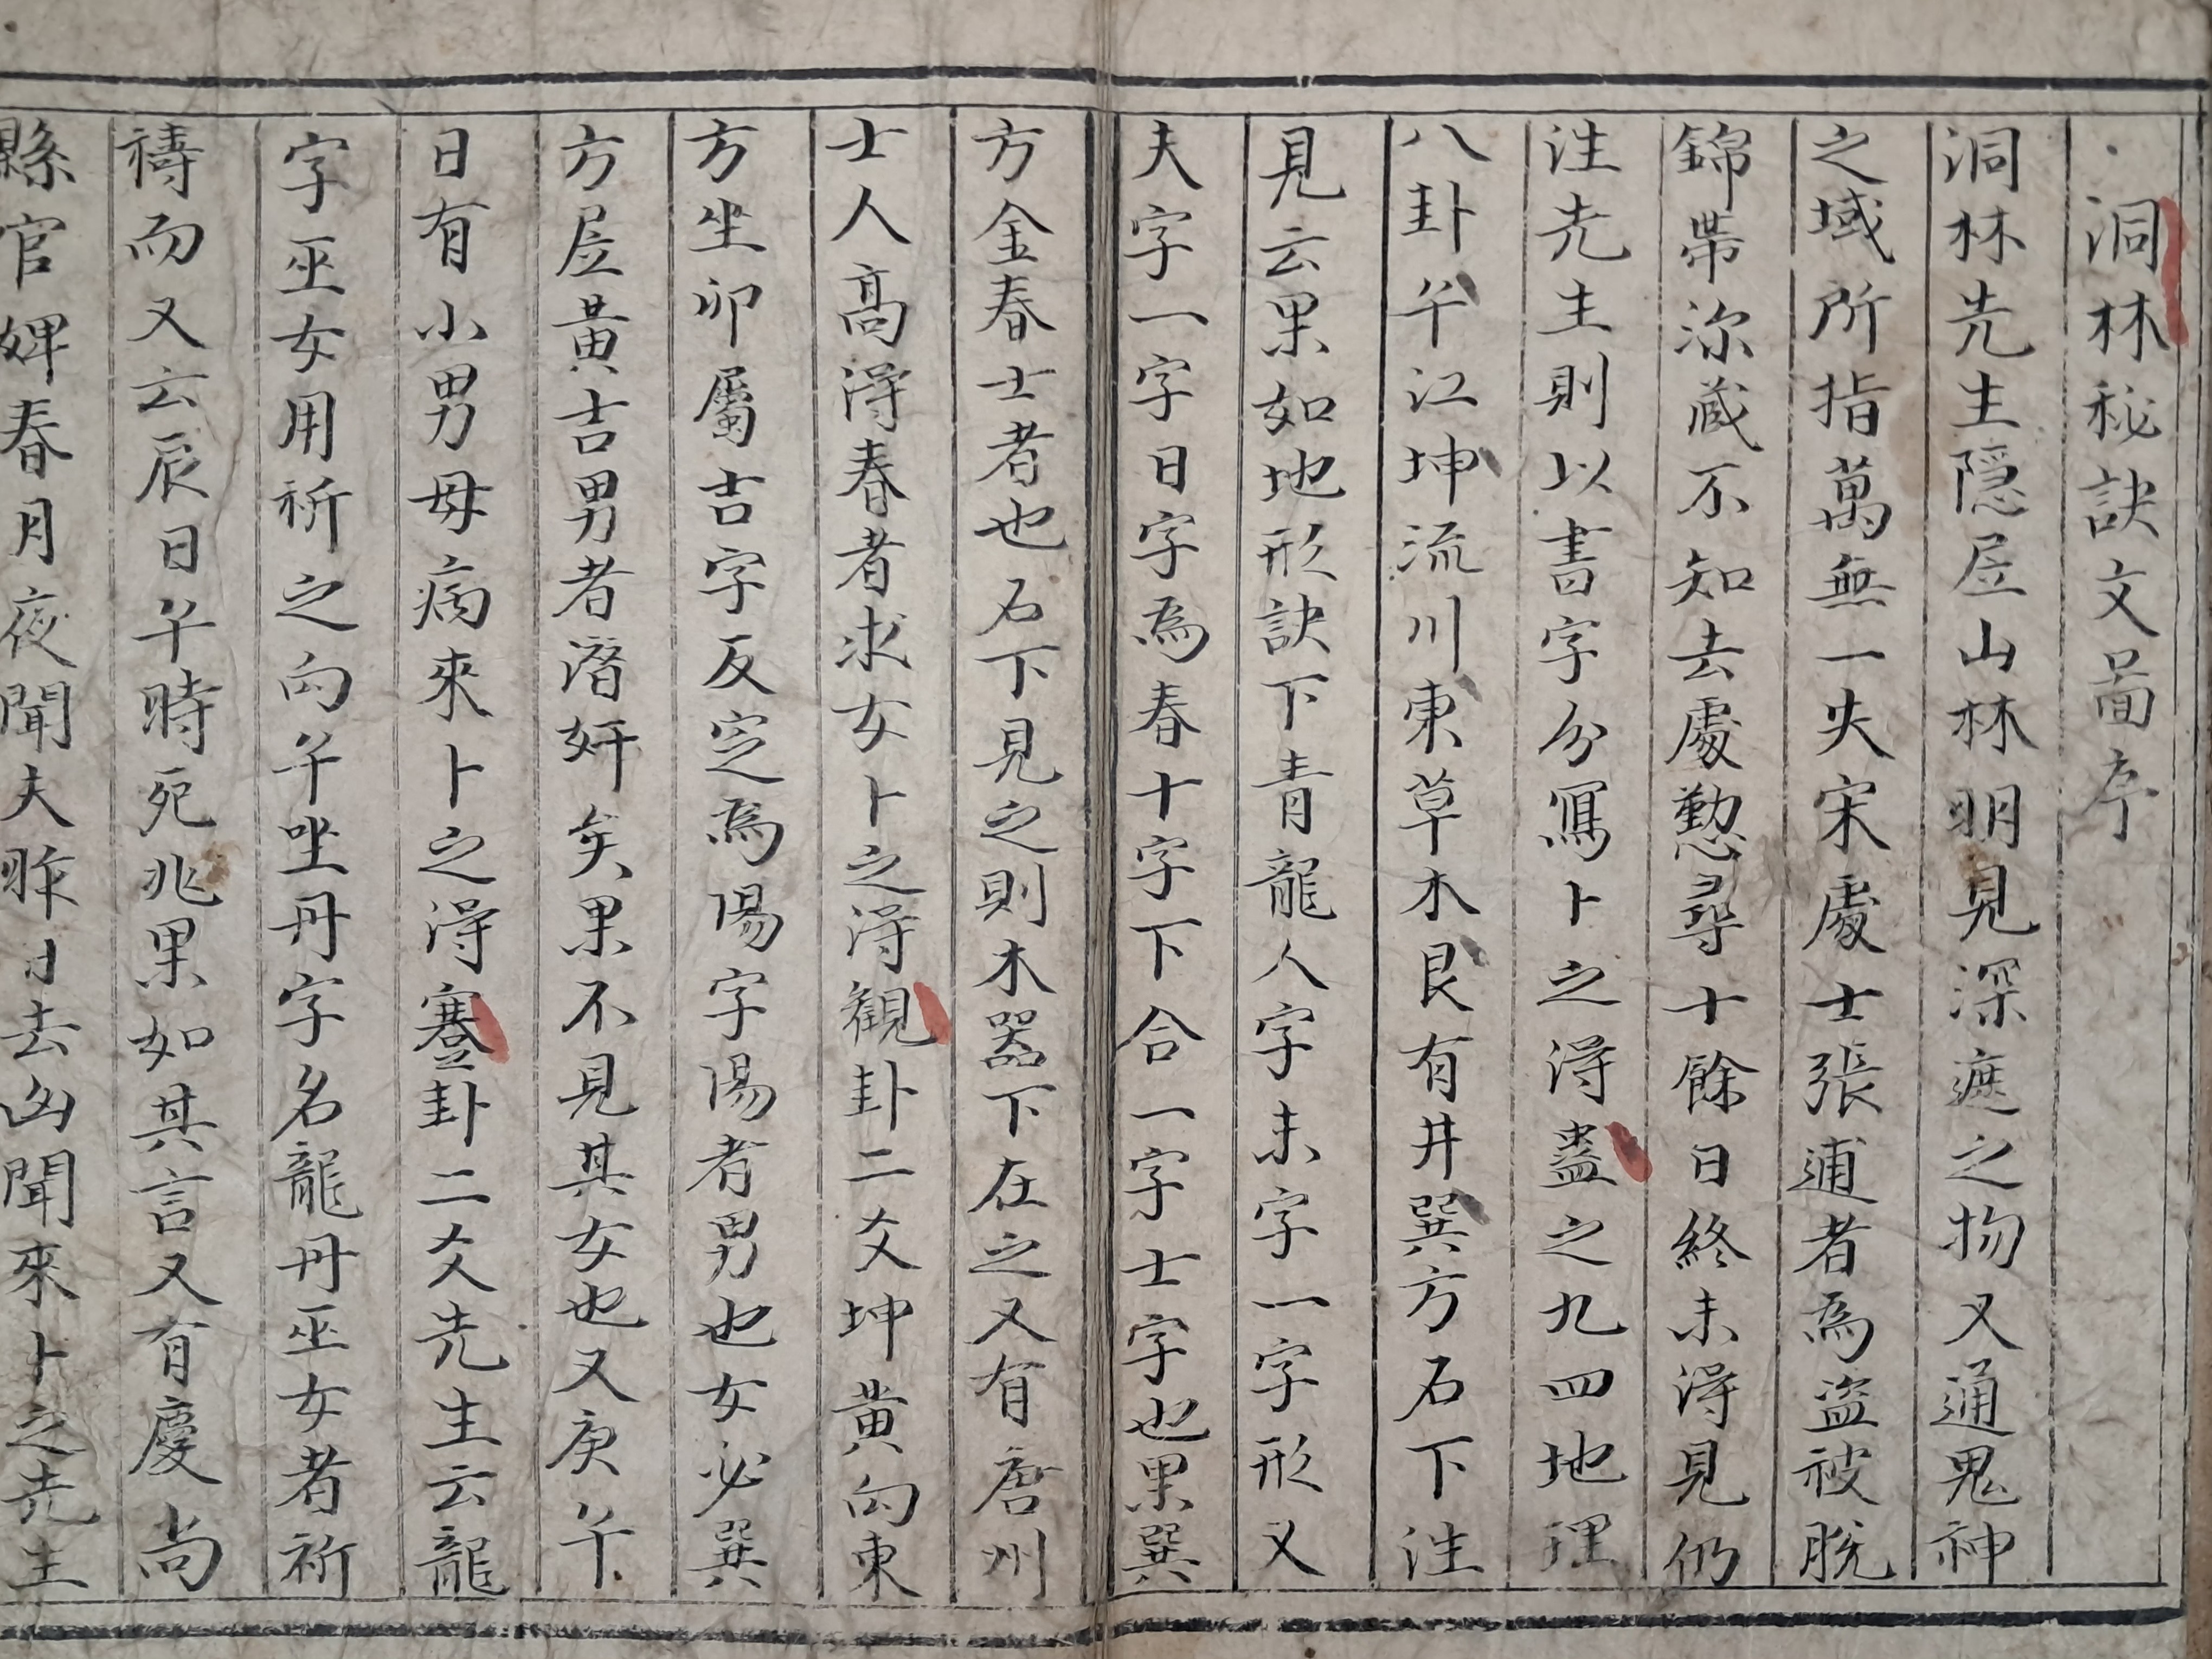 洞林秘訣文啚序
洞林先生隱居山林明見深遮之物又通鬼神
之域所指萬無一失宋處士張逋者為盜被脫
錦帶深藏不知去處懃尋十餘日終未得見仍
往先生則以書字分寫卜之得蠱之九四地理
八卦午江坤流川東草木艮有井巽方石下往
見云果如地形訣下青龍人字未字一字形又
夫字一字日字為春十字下合一字士字也果巽
方金春士者也石下見之則木器下在之又有唐州
士人高得春者求女卜之得觀卦二爻坤黃向東
方坐卯屬吉字反定為陽字陽者男也女必巽
方居黃吉男者潛奸矣果不見其女也又庚午
日有小男母病來卜之得蹇卦二爻先生云龍
字巫女用祈之向午坐丹字名龍丹巫女者祈
禱而又云辰日午時死兆果如其言又有慶尚
縣官婢春月夜聞夫昨日去凶聞來卜之先生